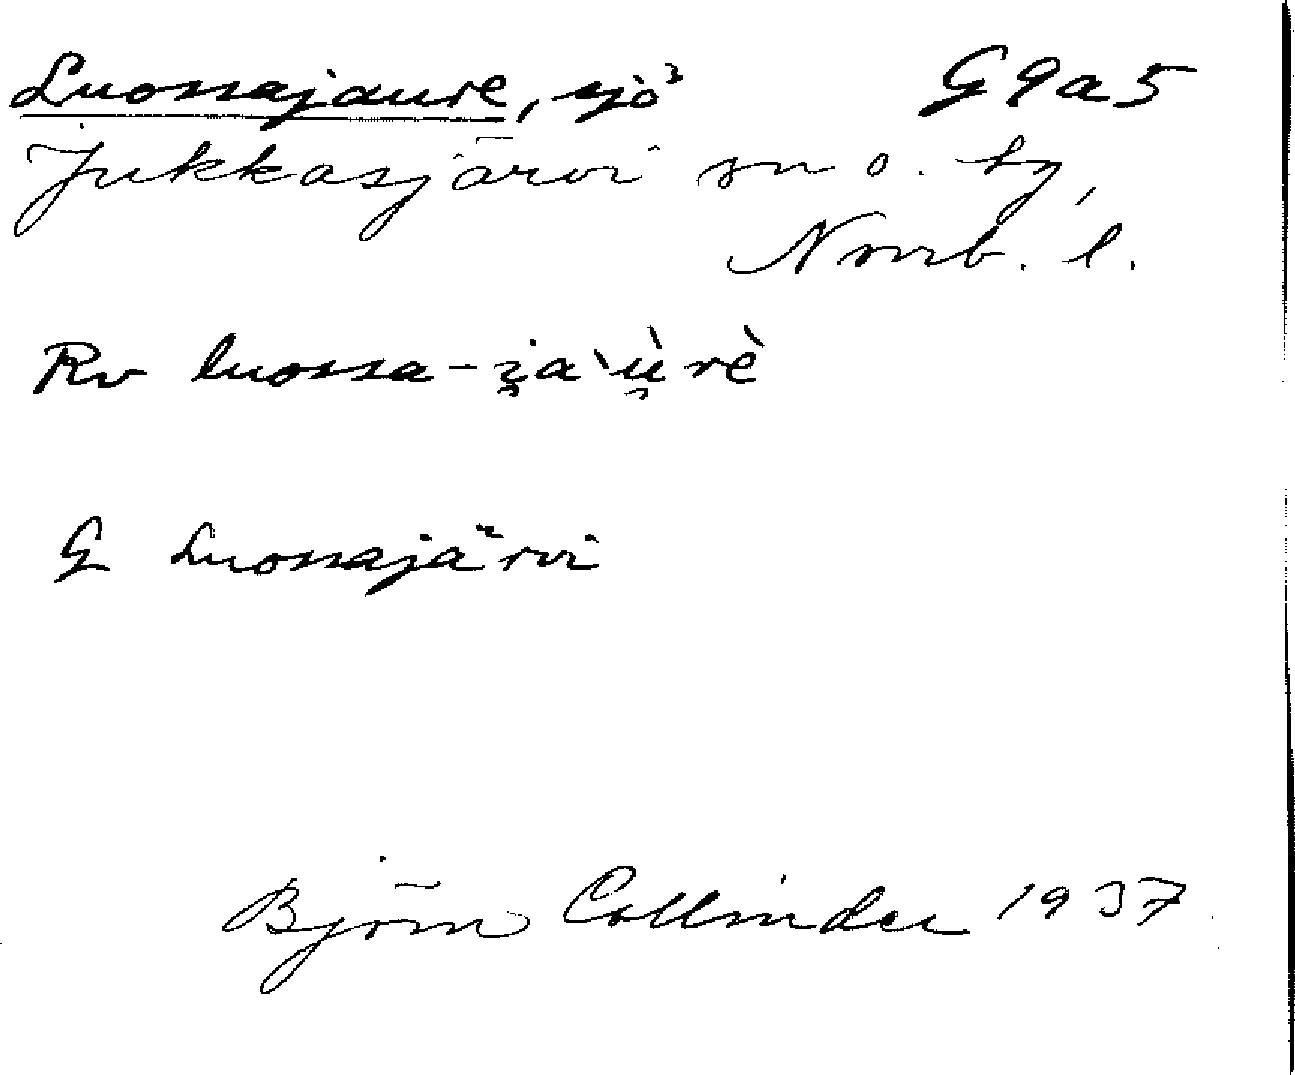 Luossajaure, sjö G9a5
Jukkasjärvi sn o. tg,
Norrb. l.
Rv luossa-i̯a`u̯̇̀rè
G Luossajärvi
Björn Collinder 1937